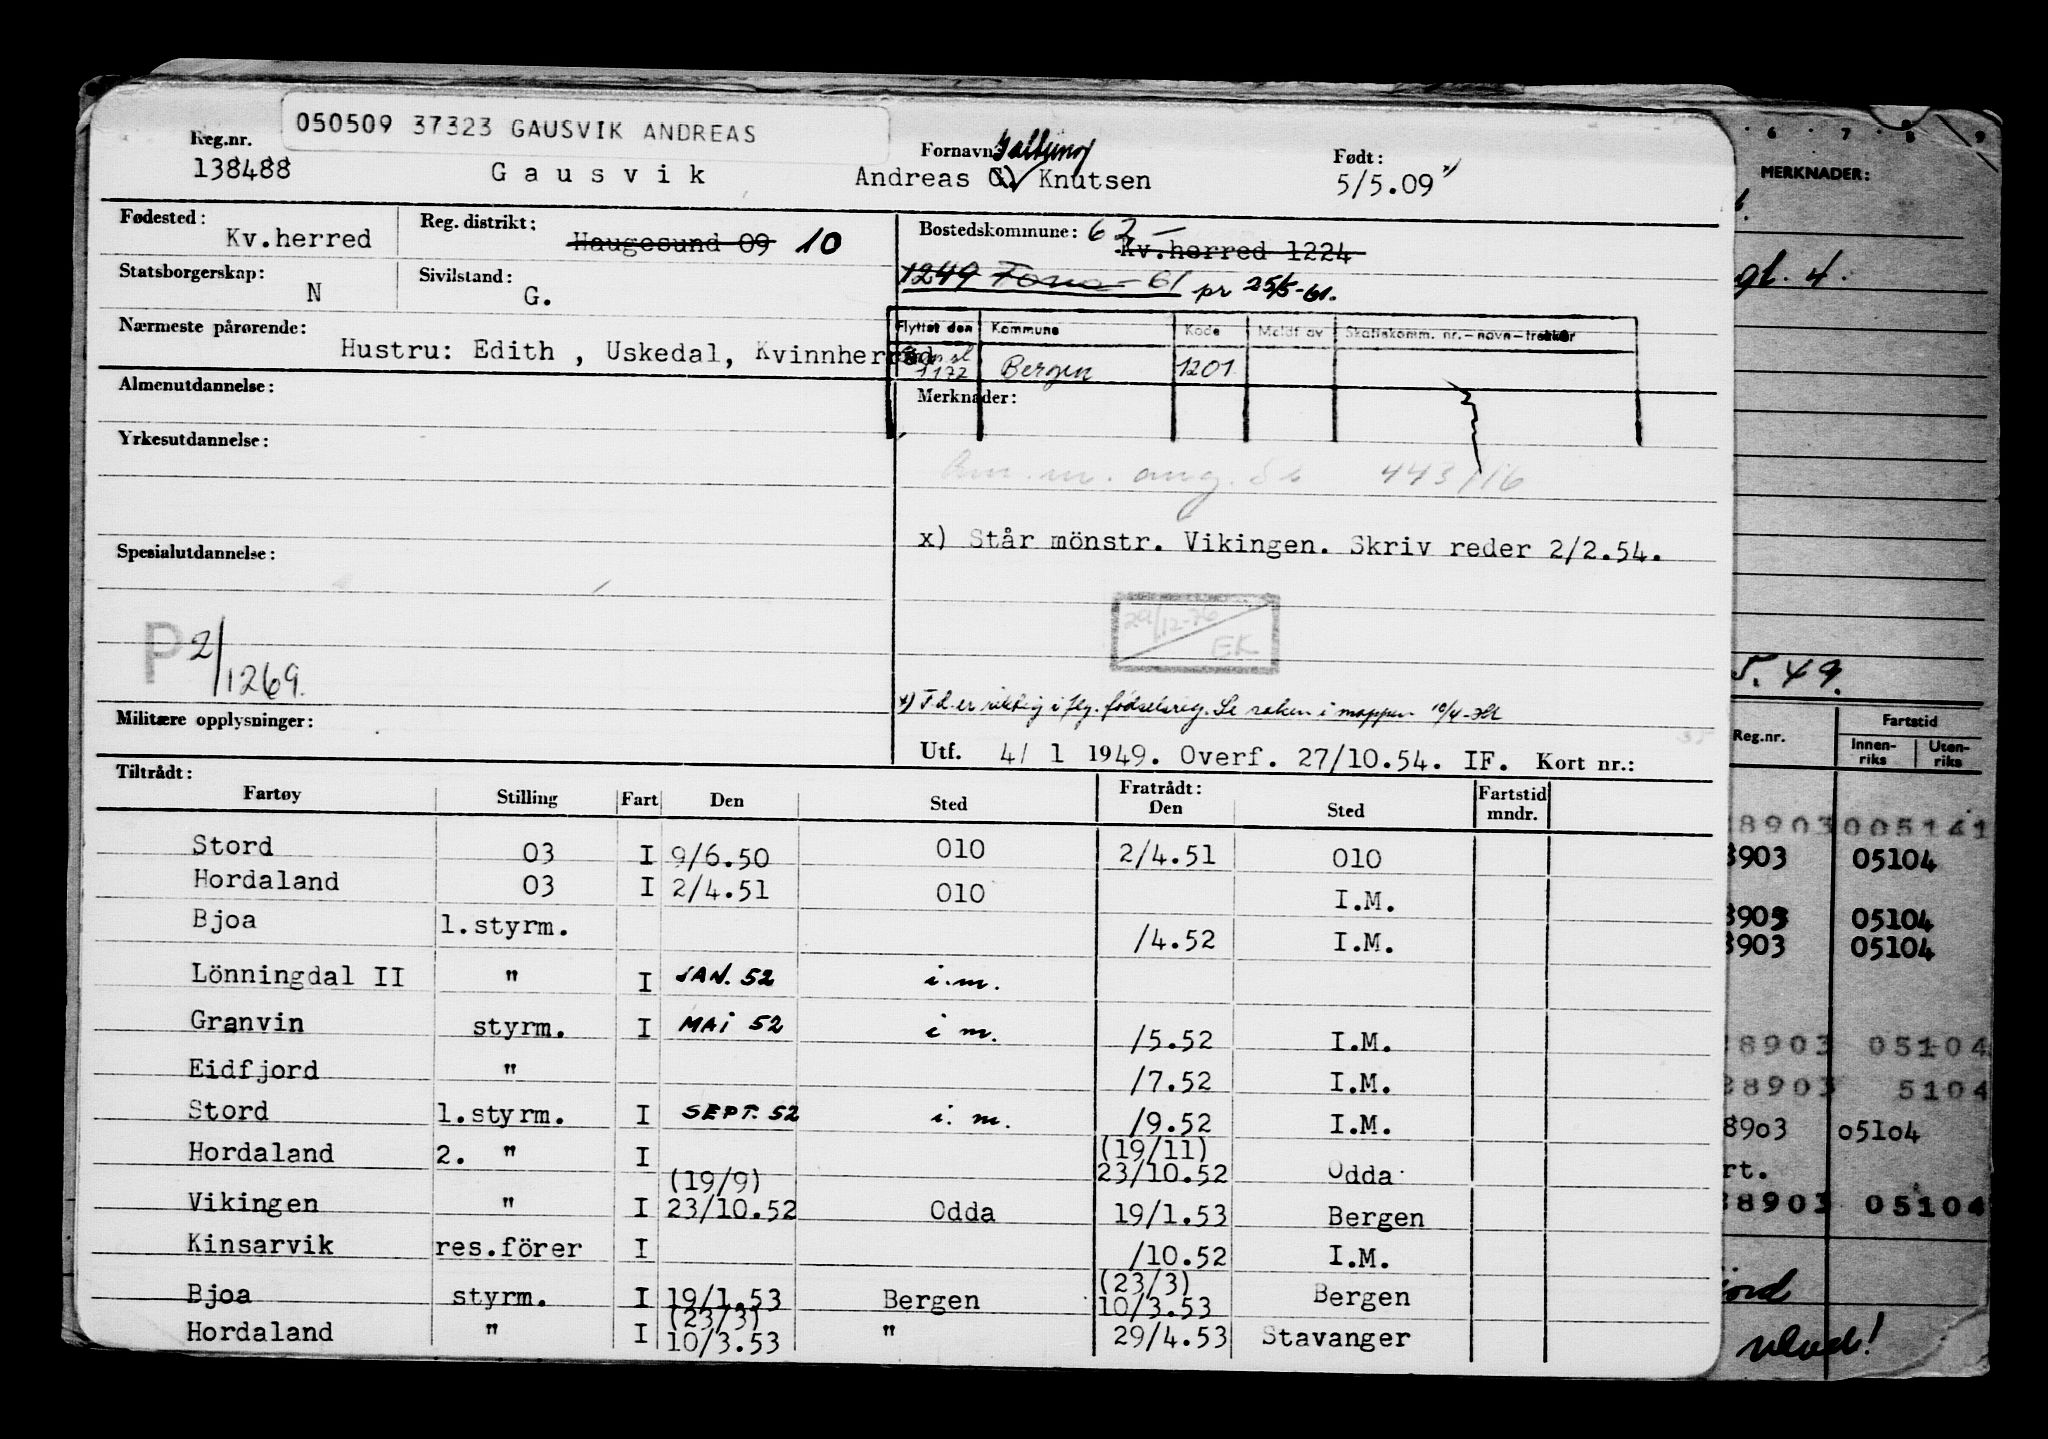 050509 37323 GAUSVIK ANDREAS
Reg.nr. 138488
Gausvik
Fornavn: Galtung
Andreas G. Knutsen
Født: 5/5.09 x)
Fødested: Kv.herred
Reg. distrikt: Haugesund 09 10
Bostedskommune: 62 –
Kv.herred 1224
1249 Fana – 61 pr 25/5-61.
Statsborgerskap: N
Sivilstand: G.
Nærmeste pårørende: Hustru: Edith , Uskedal, Kvinnherred
Flyttet den Kommune Kode Meldt av Skattekomm. nr.–navn–trekker
1172 Bergen 1201
Almenutdannelse:
Merknader:
Yrkesutdannelse:
443/16
x) Står mönstr. Vikingen. Skriv reder 2/2.54.
Spesialutdannelse:
29/12-76 EK
P 2/1269.
x) F.d. er riktig i flg. fødselsreg. Se saken i mappen 10/4-
Militære opplysninger:
Utf. 4/ 1 1949. Overf. 27/10.54. IF. Kort nr.:
Tiltrådt: Fratrådt:
Fartøy Stilling Fart Den Sted Den Sted Fartstid mndr.
Stord 03 I 9/6.50 010 2/4.51 010
Hordaland 03 I 2/4.51 010 I.M.
Bjoa 1.styrm. /4.52 I.M.
Lönningdal II " I JAN. 52 i.m.
Granvin styrm. I MAI 52 i m. /5.52 I.M.
Eidfjord " /7.52 I.M.
Stord 1.styrm. I SEPT. 52 i. m. /9.52 I.M.
Hordaland 2. " I (19/11) 23/10.52 Odda
Vikingen " I (19/9) 23/10.52 Odda 19/1.53 Bergen
Kinsarvik res.förer I /10.52 I.M.
Bjoa styrm. I 19/1.53 Bergen (23/3) 10/3.53 Bergen
Hordaland " I (23/3) 10/3.53 " 29/4.53 Stavanger
6 7 8 9
MERKNADER:
gl. 4.
5.49.
Reg.nr. Fartstid
Innenriks Utenriks
8903005141
8903 05104
8903 05104
8903 05104
28903 05104
28903 5104
8903 05104
rt.
28903 05104